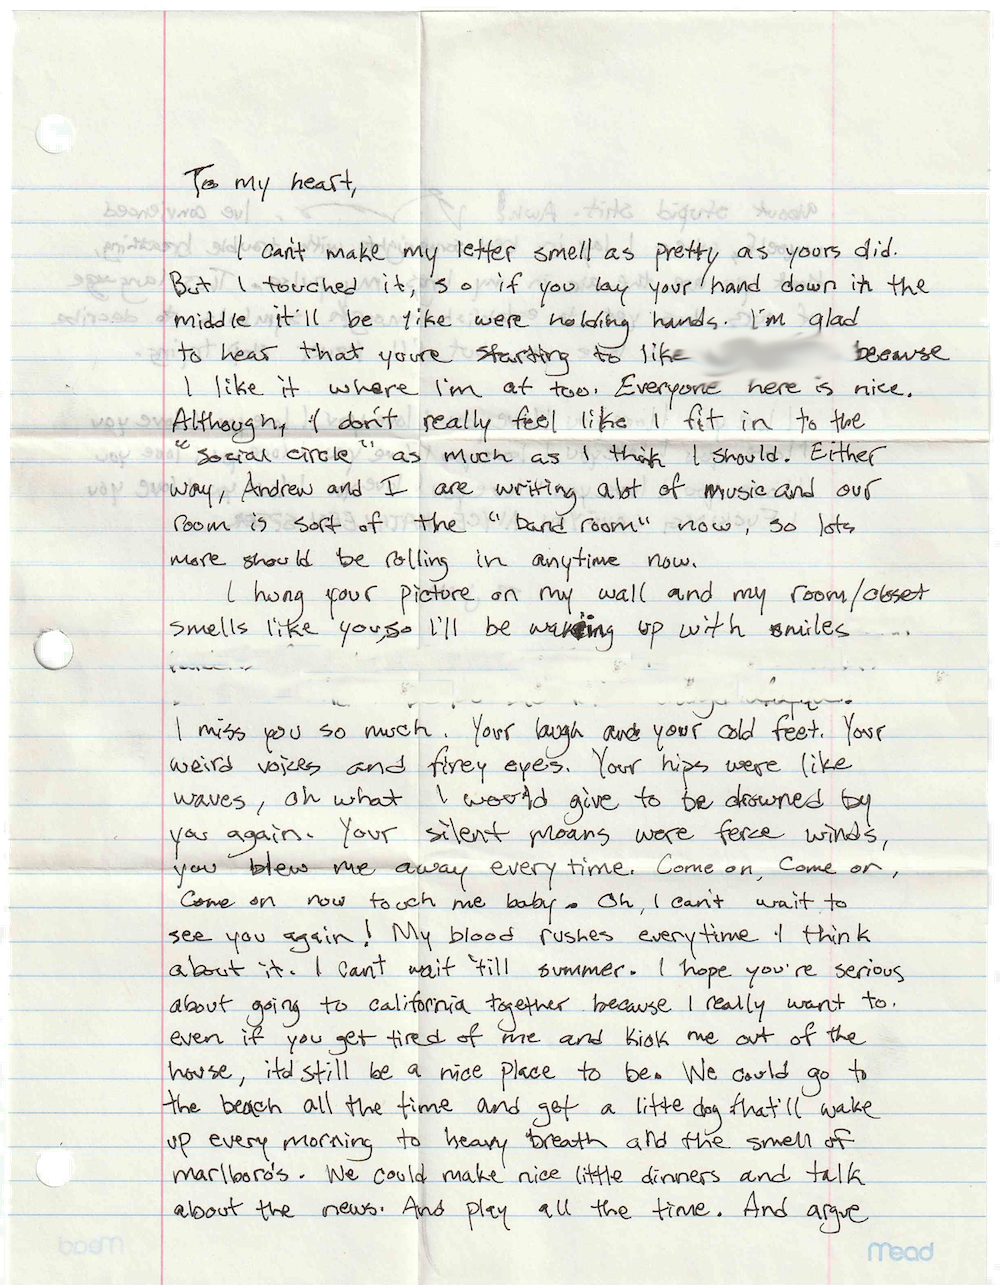 To my heart,
I can't make my letter smell as pretty as yours did.
But I touched it, so if you lay your hand down in the
middle it'll be like were holding hands. I'm glad
to hear that youre starting to like because
I like it where I'm at too. Everyone here is nice.
Although, I don't really feel like I fit in to the
"social circle" as much as I think I should. Either
way, Andrew and I are writing alot of music and our
room is sort of the "band room" now, so lots
more should be rolling in anytime now.
I hung your picture on my wall and my room/closet
smells like you, so I'll be waking up with smiles
I miss you so much. Your laugh and your cold feet. Your
weird voices and firey eyes. Your hips were like
waves, oh what I would give to be drowned by
you again. Your silent moans were ferce winds,
you blew me away everytime. Come on, Come on,
Come on now touch me baby. Oh, I can't wait to
see you again! My blood rushes everytime I think
about it. I can't wait 'till summer. I hope you're serious
about going to california together because I really want to.
even if you get tired of me and kick me out of the
house, it'd still be a nice place to be. We could go to
the beach all the time and get a litte dog that'll wake
up every morning to heavy breath and the smell of
marlboro's. We could make nice little dinners and talk
about the news. And play all the time. And argue
Mead